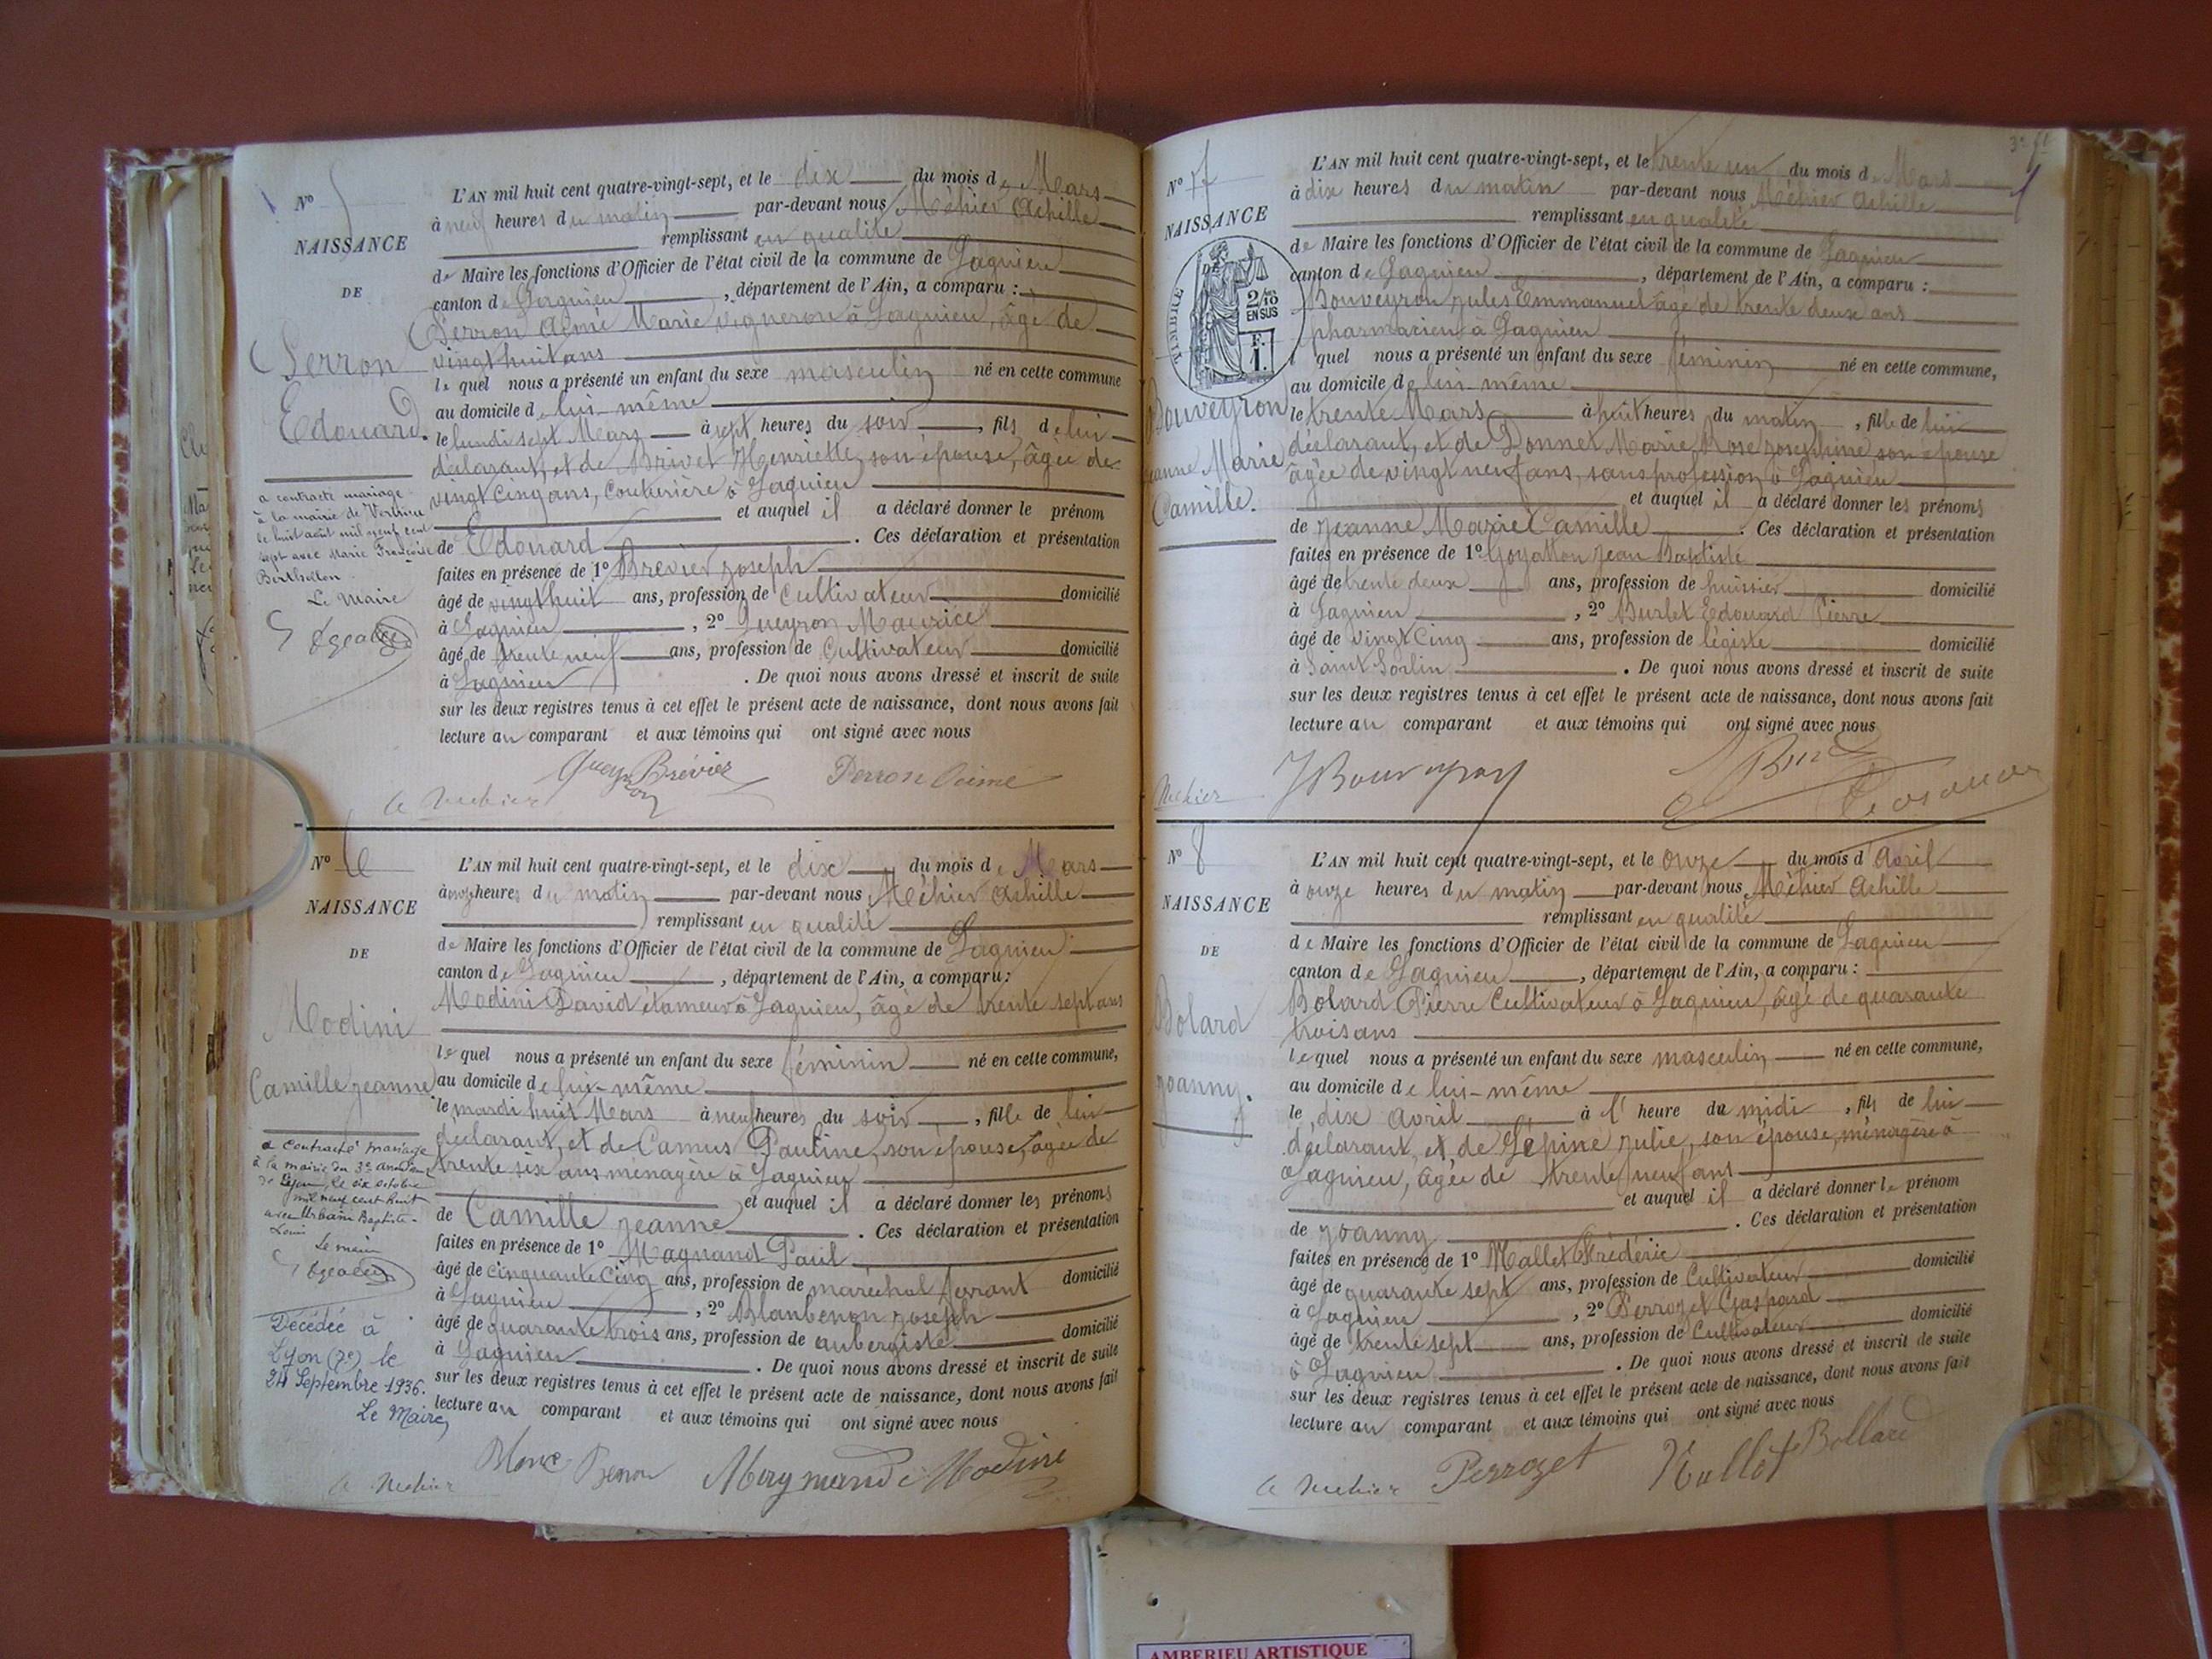 N° 5
NAISSANCE
DE
Perron
Edouard.
a contracté mariage
à la mairie de
le huit août mil neuf cent
sept avec Marie Françoise
Berthollon
Le Maire
L'AN mil huit cent quatre-vingt-sept, et le dix du mois de Mars
à neuf heures du matin par-devant nous Méhier Achille
remplissant en qualité
de Maire les fonctions d'Officier de l'état civil de la commune de Lagnieu
canton de Lagnieu, département de l'Ain, a comparu :
Perron Aimé Marie vigneron à Lagnieu, âgé de
vingt huit ans
le quel nous a présenté un enfant du sexe masculin né en cette commune
au domicile de lui-même
le lundi sept Mars à sept heures du soir, fils de lui
déclarant, et de Brivet Henriette, son épouse, âgée de
vingt cinq ans, couturière à Lagnieu
et auquel il a déclaré donner le prénom
de Edouard. Ces déclaration et présentation
faites en présence de 1° Brevier Joseph
âgé de vingt huit ans, profession de Cultivateur domicilié
à Lagnieu, 2° Queyron Maurice
âgé de trente neuf ans, profession de Cultivateur domicilié
à Lagnieu. De quoi nous avons dressé et inscrit de suite
sur les deux registres tenus à cet effet le présent acte de naissance, dont nous avons fait
lecture au comparant et aux témoins qui ont signé avec nous
Queyron Brévier Perron Aimé
A Méhier
N° 6
NAISSANCE
DE
Modini
Camille Jeanne
a contracté mariage
à la mairie du 3e arrondt
de Lyon, le dix octobre
mil neuf cent huit
avec Urbain Baptiste-
Louis
Le maire
Décédée à
Lyon (7e) le
24 Septembre 1936.
Le Maire,
L'AN mil huit cent quatre-vingt-sept, et le dix du mois de Mars
à onze heures du matin par-devant nous Méhier Achille
remplissant en qualité
de Maire les fonctions d'Officier de l'état civil de la commune de Lagnieu
canton de Lagnieu, département de l'Ain, a comparu :
Modini David étameur à Lagnieu, âgé de trente sept ans
le quel nous a présenté un enfant du sexe féminin né en cette commune,
au domicile de lui-même
le mardi huit Mars à neuf heures du soir, fille de lui
déclarant, et de Camus Pauline, son épouse, âgée de
trente six ans ménagère à Lagnieu
et auquel il a déclaré donner les prénoms
de Camille Jeanne. Ces déclaration et présentation
faites en présence de 1° Magnand Paul
âgé de cinquante cinq ans, profession de maréchal ferrant domicilié
à Lagnieu, 2° Blanbenon Joseph
âgé de quarante trois ans, profession de aubergiste domicilié
à Lagnieu. De quoi nous avons dressé et inscrit de suite
sur les deux registres tenus à cet effet le présent acte de naissance, dont nous avons fait
lecture au comparant et aux témoins qui ont signé avec nous
A Méhier Modini
N° 7
NAISSANCE
2/10
EN SUS
F.
1.
Bouveyron
Jeanne Marie
Camille.
L'AN mil huit cent quatre-vingt-sept, et le trente un du mois de Mars
à dix heures du matin par-devant nous Méhier Achille
remplissant en qualité
de Maire les fonctions d'Officier de l'état civil de la commune de Lagnieu
canton de Lagnieu, département de l'Ain, a comparu :
Bouveyron Jules Emmanuel âgé de trente deux ans
pharmacien à Lagnieu
l quel nous a présenté un enfant du sexe féminin né en cette commune,
au domicile de lui-même
le trente Mars à huit heures du matin, fille de lui
déclarant, et de Donnet Marie Rose Joséphine son épouse
âgée de vingt neuf ans, sans profession à Lagnieu
et auquel il a déclaré donner les prénoms
de Jeanne Marie Camille. Ces déclaration et présentation
faites en présence de 1° Goyatton Jean Baptiste
âgé de trente deux ans, profession de huissier domicilié
à Lagnieu, 2° Burlet Edouard Pierre
âgé de vingt cinq ans, profession de légiste domicilié
à Saint Sorlin. De quoi nous avons dressé et inscrit de suite
sur les deux registres tenus à cet effet le présent acte de naissance, dont nous avons fait
lecture au comparant et aux témoins qui ont signé avec nous
Méhier JBouveyron
N° 8
NAISSANCE
DE
Bolard
Joanny.
L'AN mil huit cent quatre-vingt-sept, et le onze du mois d'Avril
à onze heures du matin par-devant nous Méhier Achille
remplissant en qualité
de Maire les fonctions d'Officier de l'état civil de la commune de Lagnieu
canton de Lagnieu, département de l'Ain, a comparu :
Bolard Pierre Cultivateur à Lagnieu, âgé de quarante
trois ans
le quel nous a présenté un enfant du sexe masculin né en cette commune,
au domicile de lui-même
le dix Avril à l' heure de midi, fils de lui
déclarant, et de Lépine Julie, son épouse, ménagère à
Lagnieu, âgée de trente neuf ans
et auquel il a déclaré donner le prénom
de Joanny. Ces déclaration et présentation
faites en présence de 1° Mallet Frédéric
âgé de quarante sept ans, profession de Cultivateur domicilié
à Lagnieu, 2° Perrozet Gaspard
âgé de trente sept ans, profession de Cultivateur domicilié
à Lagnieu. De quoi nous avons dressé et inscrit de suite
sur les deux registres tenus à cet effet le présent acte de naissance, dont nous avons fait
lecture au comparant et aux témoins qui ont signé avec nous
A Méhier Perrozet Mallet Bollard
AMBERIEU ARTISTIQUE